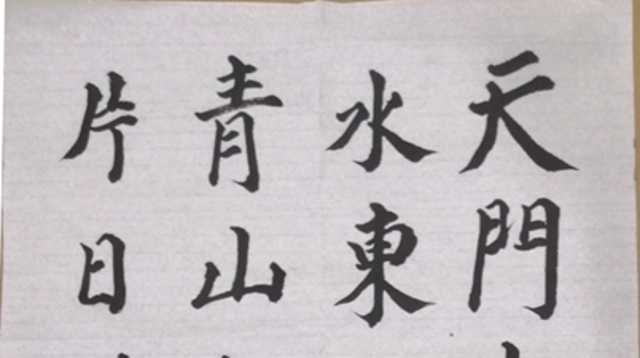 天門
水東
青山
片日